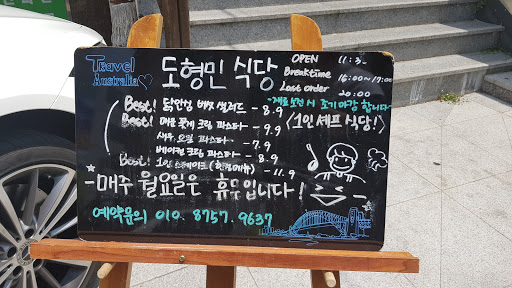 Travel
Australia
도형민 식당
OPEN 11:3
Breaktime
15:00~17:00
Last order
20:00
-재료 소진 시 조기 마감 합니다-
<1인 셰프 식당!>
Best! 닭안심 매콤 샐러드 - 8.9
Best! 매콤 꽃게 크림 파스타 - 9.9
새우 오일 파스타 - 7.9
베이컨 크림 파스타 - 8.9
Best! 1인 스테이크 (한정메뉴) - 11.9
-매주 월요일은 휴무입니다!
예약문의 010. 8757. 9637